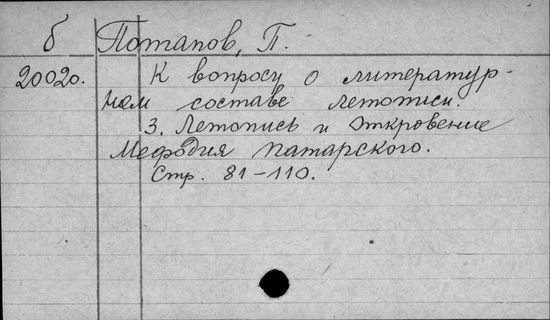 б Потапов, П.
20020. К вопросу о литератур-
ном составе летописи.
3. Летопись и Откровение
Мефодия Патарского.
Стр. 81-110.